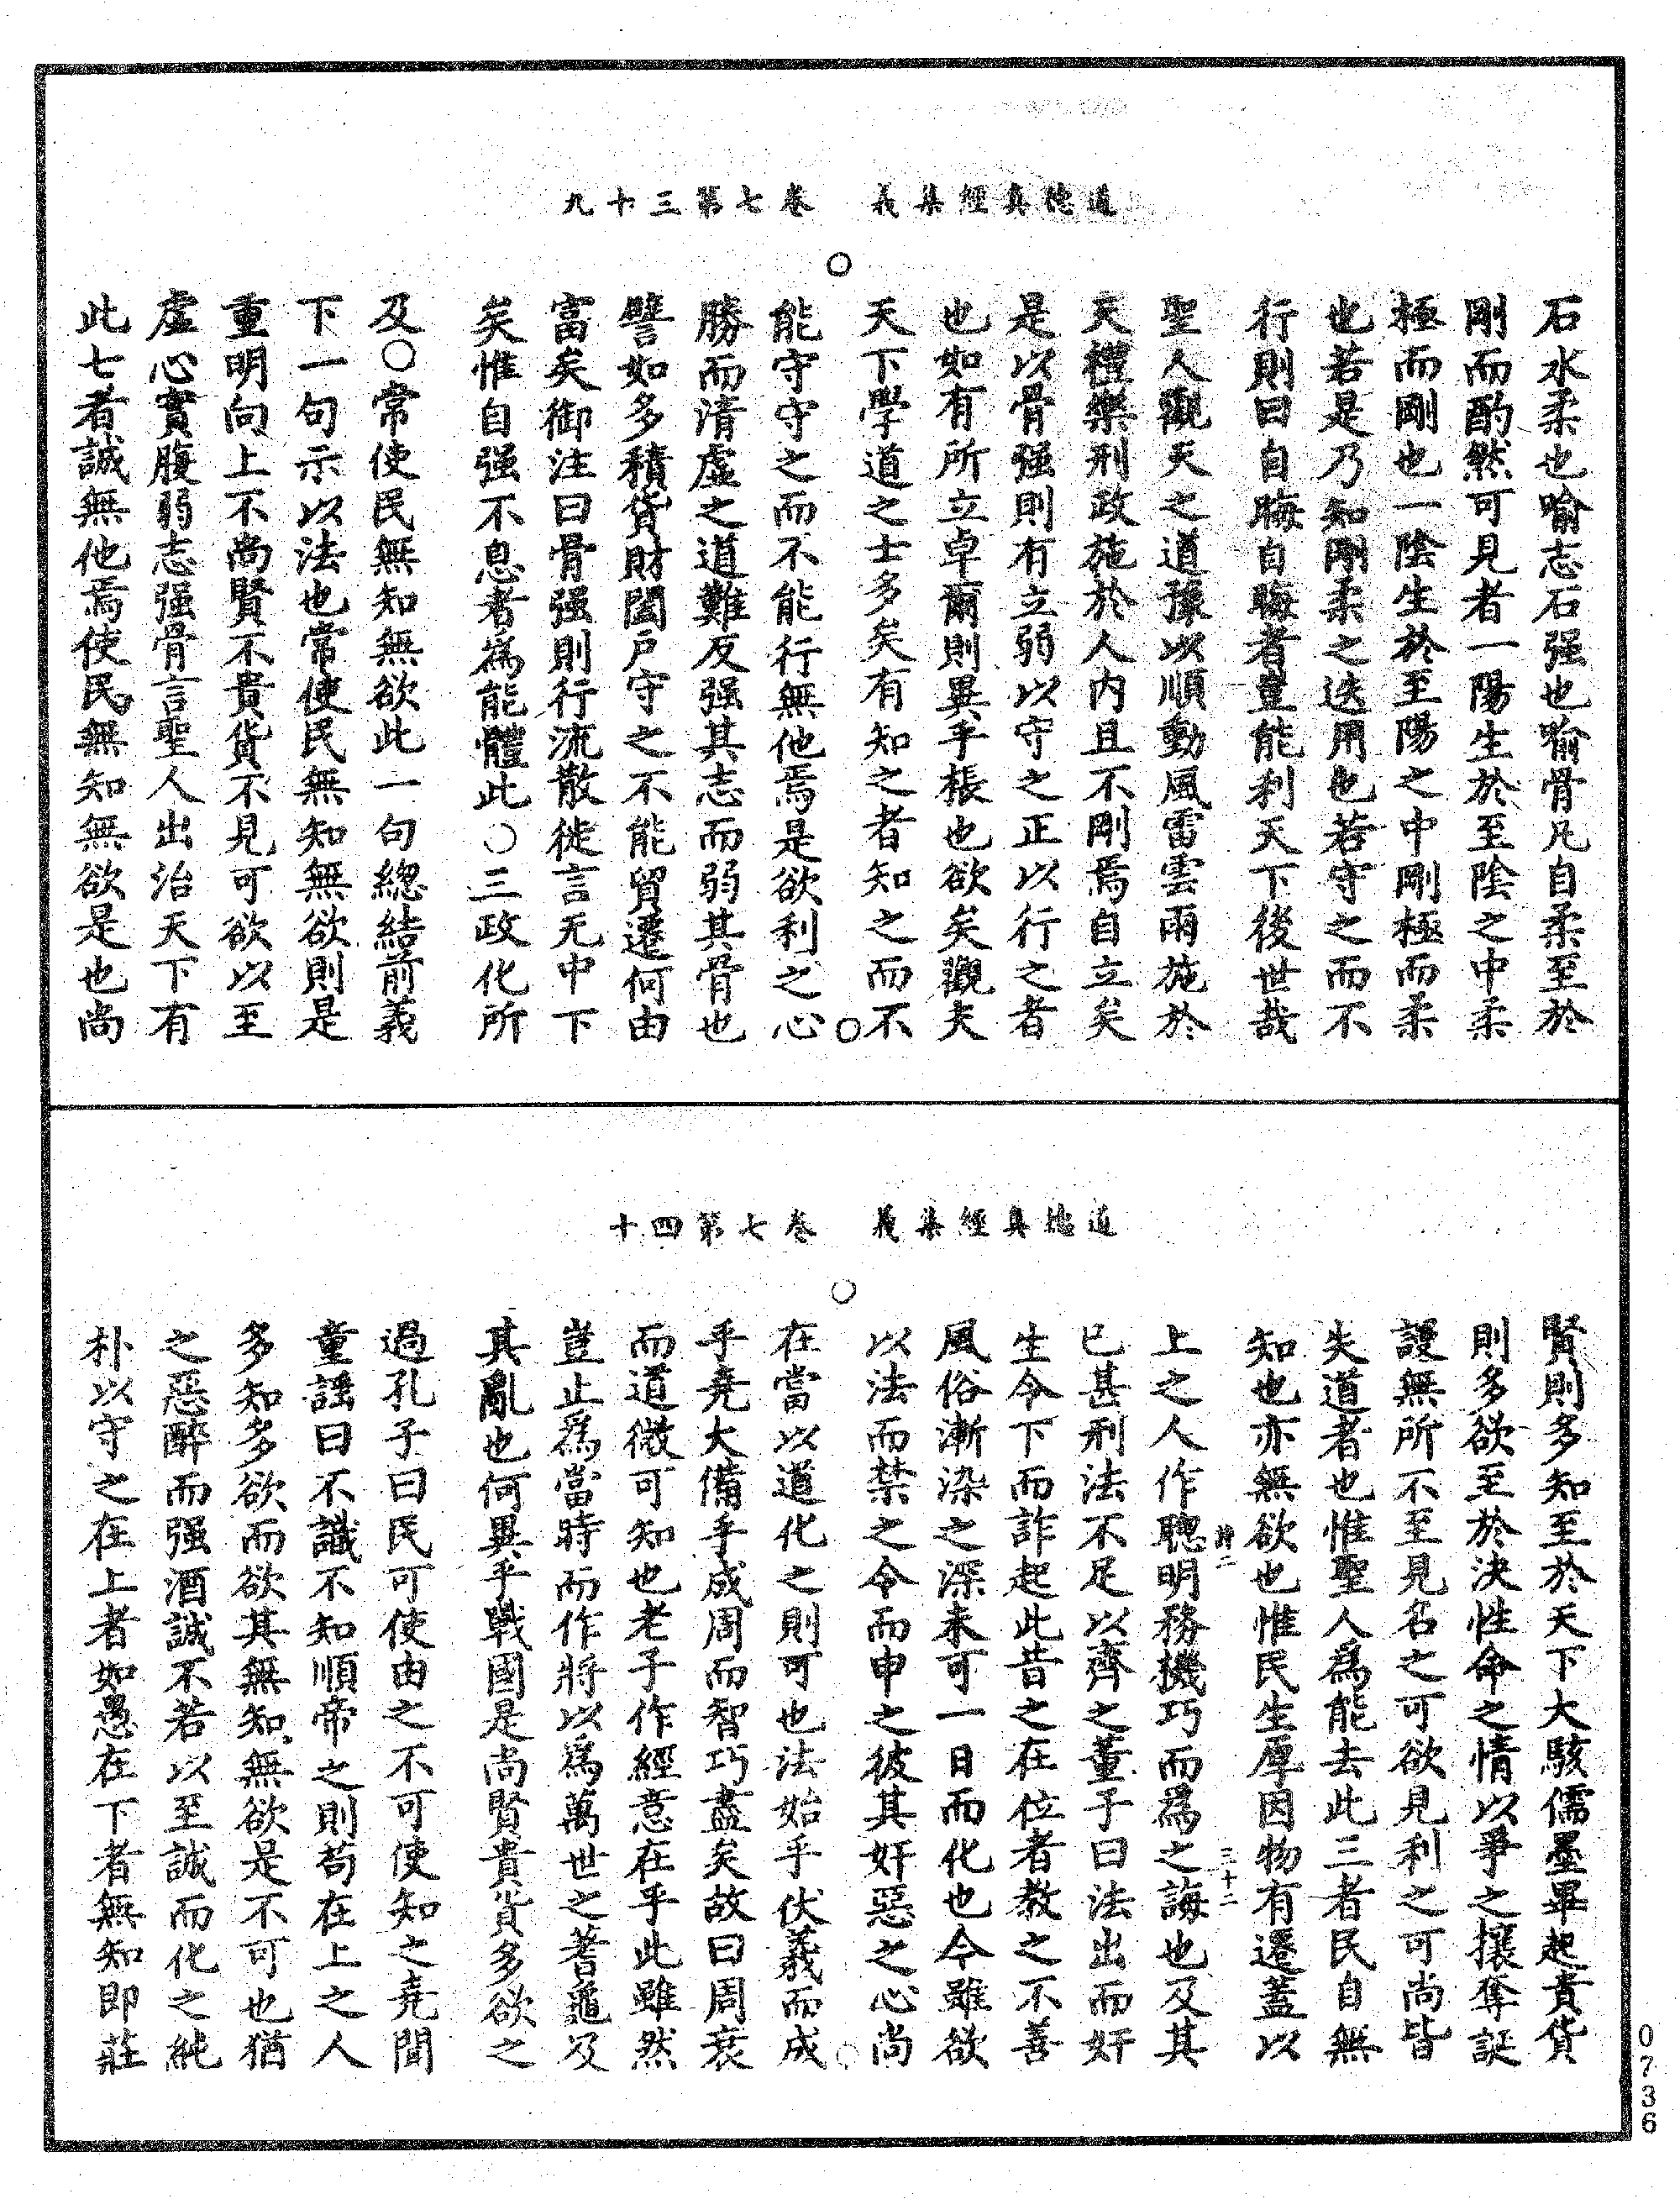 道德真經集義　卷七第三十九
石水柔也喻志石强也喻骨凡自柔至於
剛而酌然可見者一陽生於至陰之中柔
極而剛也一陰生於至陽之中剛極而柔
也若是乃知剛柔之迭用也若守之而不
行則曰自晦自晦者豈能利天下後世哉
聖人觀天之道豫以順動風雷雲雨施於
天禮樂刑政施於人內且不剛焉自立矣
是以骨强則有立弱以守之正以行之者
也如有所立卓爾則異乎棖也欲矣觀夫
天下學道之士多矣有知之者知之而不
能守守之而不能行無他焉是欲利之心
勝而清虛之道難反强其志而弱其骨也
譬如多積貨財闔戶守之不能貿遷何由
富矣御注曰骨强則行流散徙言无中下
矣惟自强不息者爲能體此○三政化所
及○常使民無知無欲此一句緫結前義
下一句示以法也常使民無知無欲則是
重明向上不尚賢不貴貨不見可欲以至
虛心實腹弱志强骨言聖人出治天下有
此七者誠無他焉使民無知無欲是也尚
道德真經集義　卷七第四十
賢則多知至於天下大駭儒墨畢起貴貨
則多欲至於决性命之情以爭之攘奪誕
謾無所不至見名之可欲見利之可尚皆
失道者也惟聖人爲能去此三者民自無
知也亦無欲也惟民生厚因物有遷蓋以
三十二
上之人作聰明務機巧而爲之誨也及其
已甚刑法不足以齊之董子曰法出而奸
生令下而詐起此昔之在位者教之不善
風俗漸染之深未可一日而化也今雖欲
以法而禁之令而申之彼其奸惡之心尚
在當以道化之則可也法始乎伏羲而成
乎堯大備乎成周而智巧盡矣故曰周衰
而道微可知也老子作經意在乎此雖然
豈止爲當時而作將以爲萬世之蓍龜及
其亂也何異乎戰國是尚賢貴貨多欲之
過孔子曰民可使由之不可使知之堯聞
童謡曰不識不知順帝之則苟在上之人
多知多欲而欲其無知無欲是不可也猶
之惡醉而强酒誠不若以至誠而化之純
朴以守之在上者如愚在下者無知即莊
0736